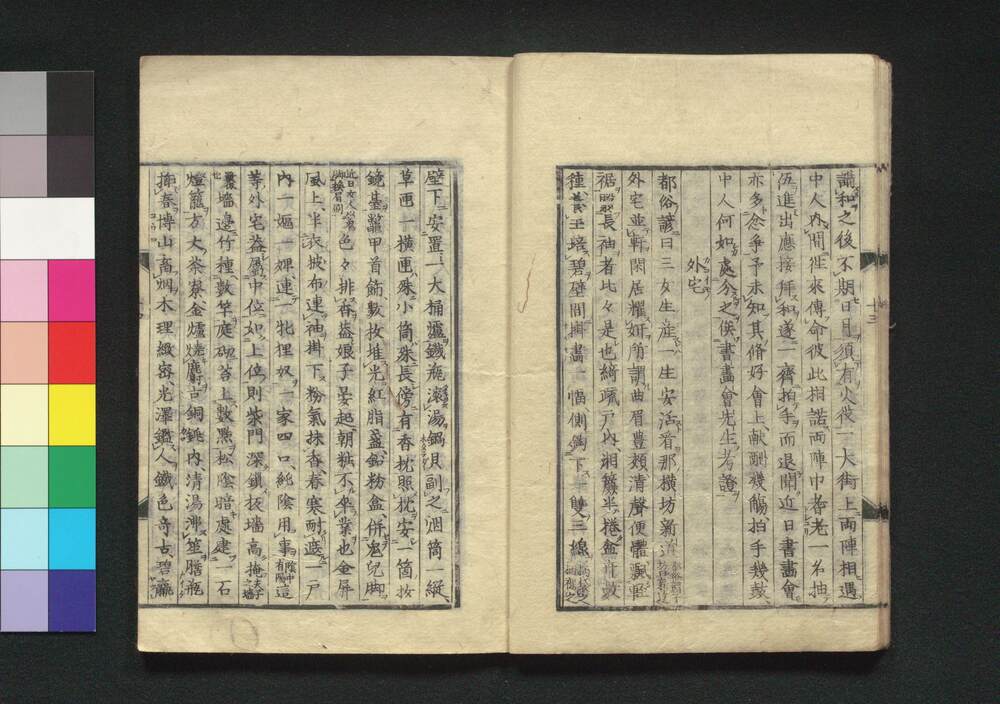 識和之後不期日月須有火役一大街上両陣相遇
中人内間徃來傳命彼此相諾両陣中耆老一名抽
伍進出應接拜和遂一齊拍手而退聞近日書畫會
亦多忿爭予未知其脩好會上献酬襪觴拍手幾鼓
中人何如處分之俟書畫會先生考證
外宅
都俗諺曰三女生産一生安活看那横坊新道
外宅並軒閑居耀妍簡調曲眉豊頬清聲便體飄軽
裾翳長袖者比々是也綺疏戸内湘簾半捲盆荘數
種養玉培碧壁間掛畫一幅側鉤下一雙三線
壁下安置一大桶爐鐵瓶滾湯鍋具副之烟筒一縦
草匣一横匣殊小筒殊長傍有春枕照枕安一箇按
鏡基鼈甲首飾數枚堆光紅脂盞鉛粉盒併鬼兒脚
色々排香盆娘子晏起朝粧不卒業也金屏
風上半衣披布連袖掛下粉氣抹香春寒耐遮一戸
内一嫗一婢連一牝狸奴一家四口純陰用事陰中有陽這
等外宅葢中位如上位則柴門深鎖板墻高掩夫子之墻
墻邉竹種數竿庭砌苔上數㸃松陰暗處建一石
燈籠方大茶寮金爐燒麝古銅銚内清湯沸笙膽瓶
挿春博山畜烟木理緻密光澤鑑人鐵色奇古碧
十三